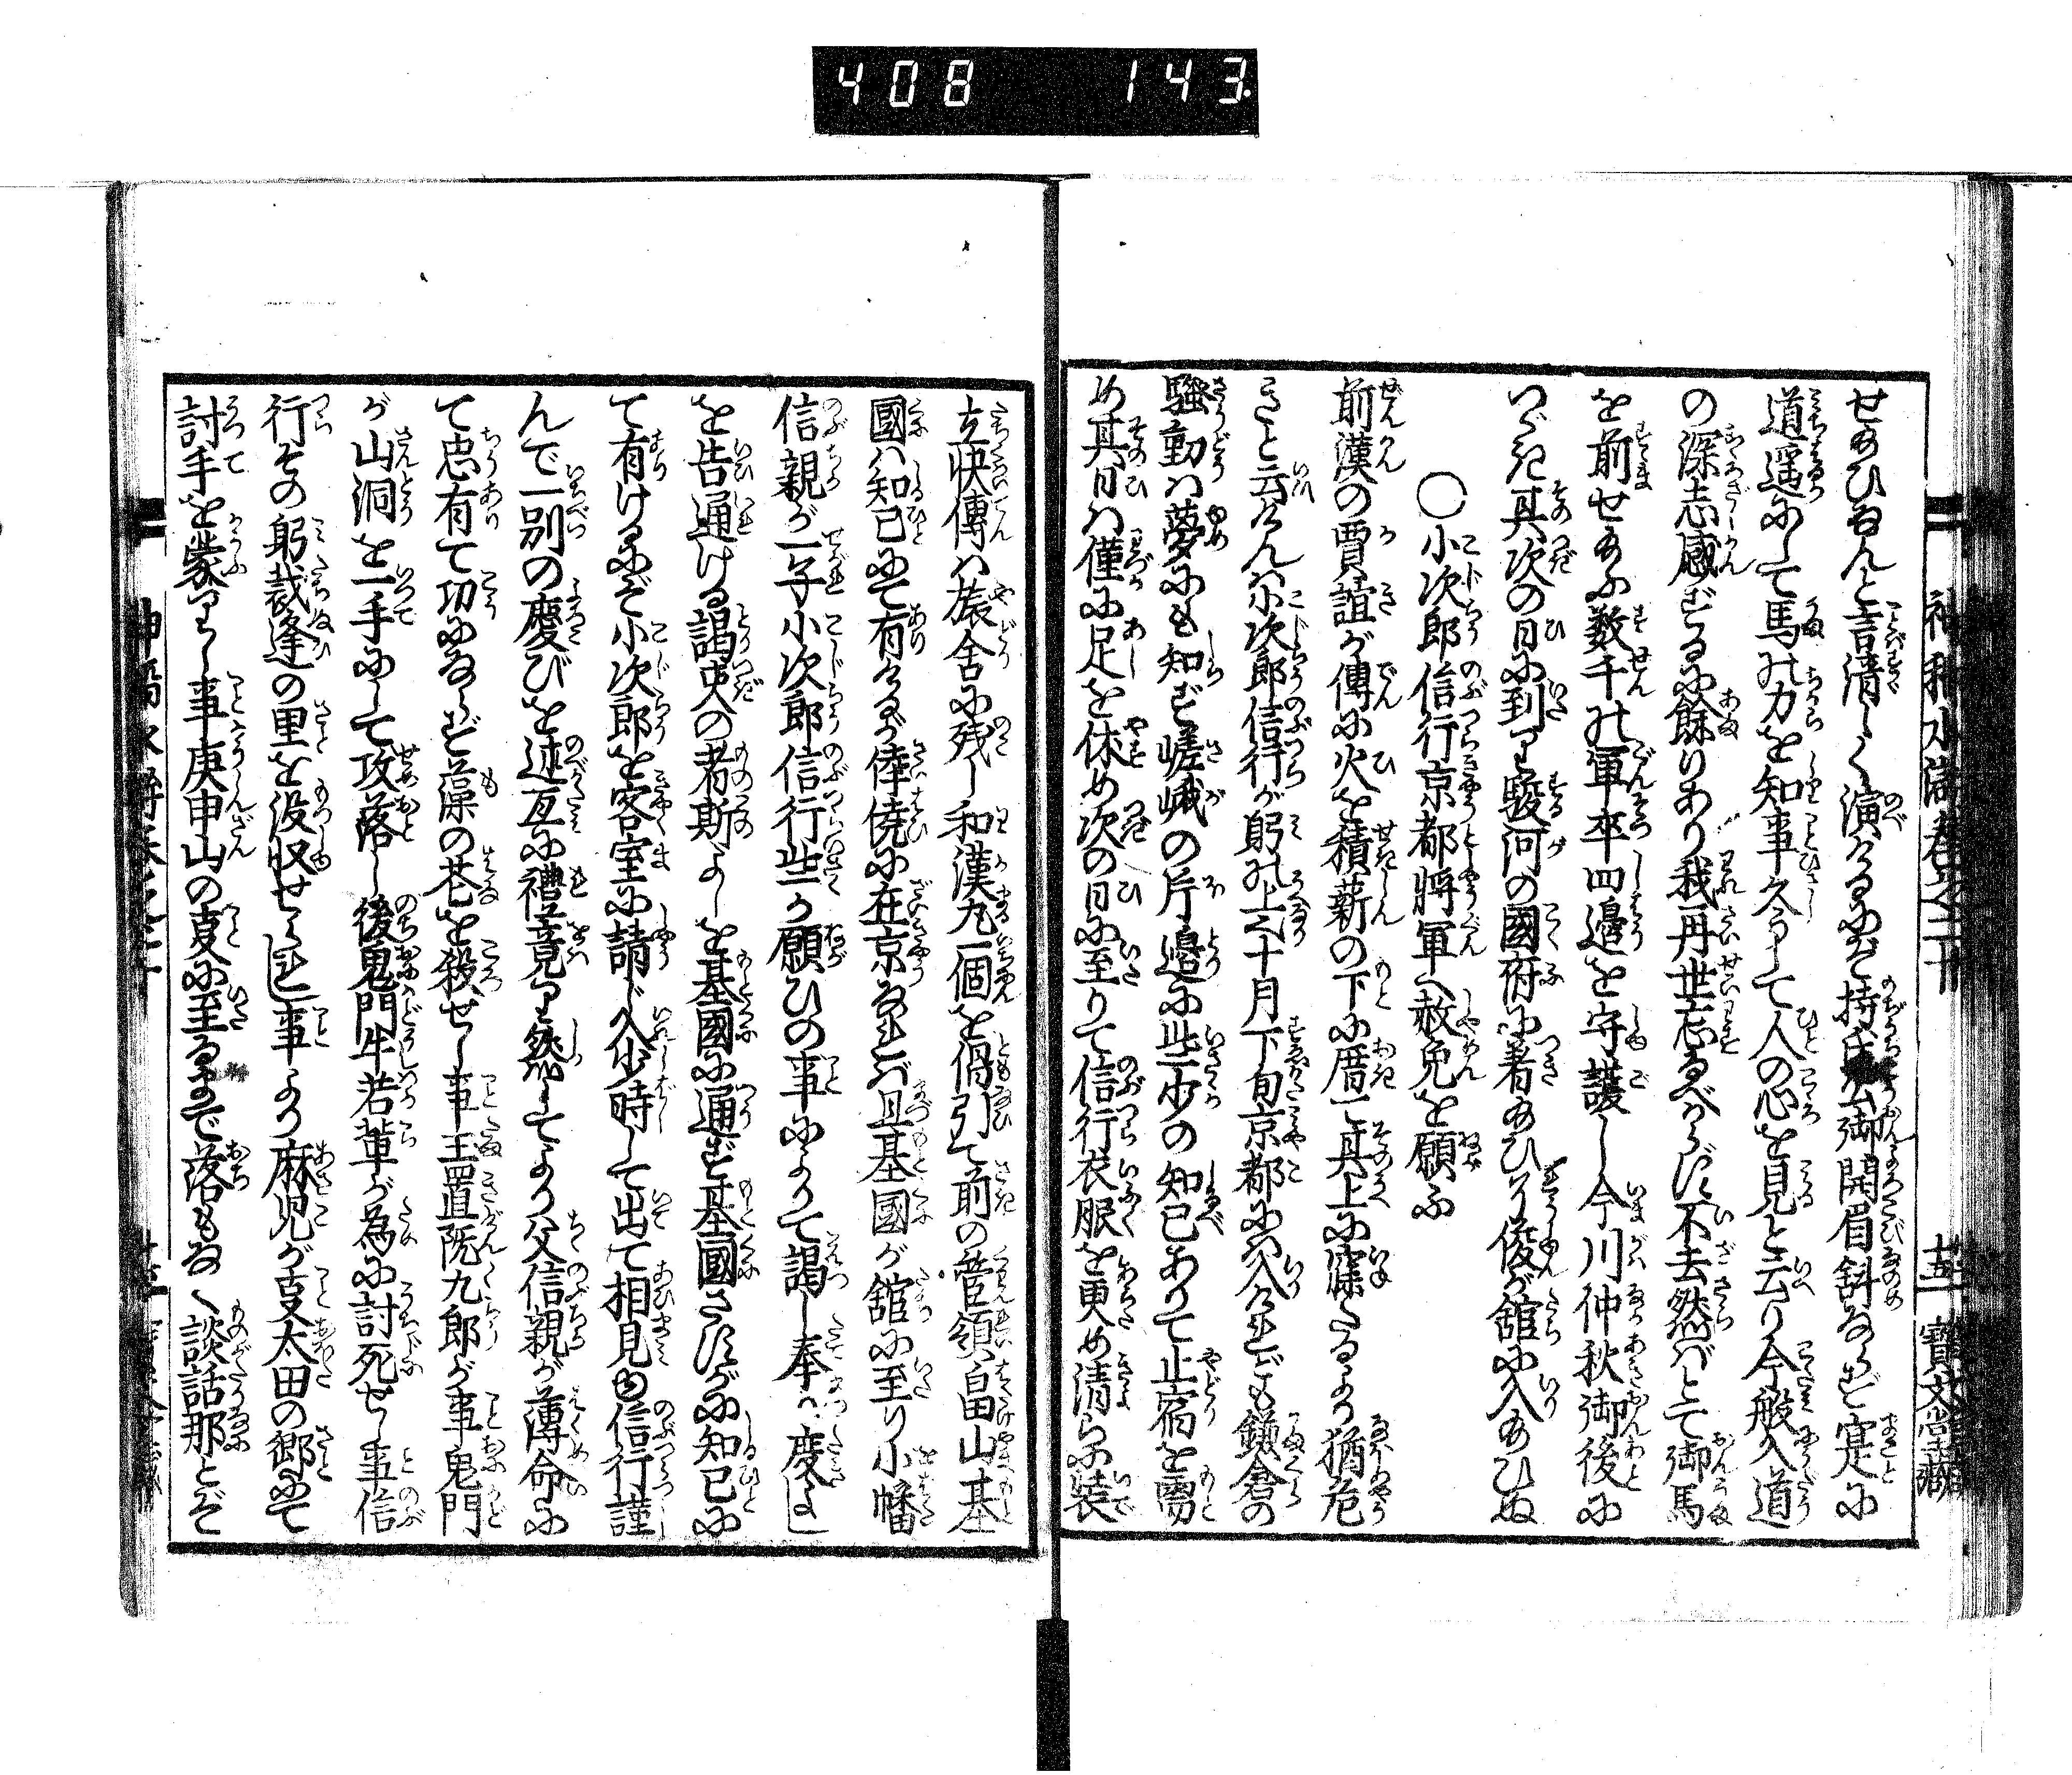 408 143
せ給ひねんと言清しく演けるにぞ持氏公御開眉斜ならず寔に
道遥にして馬の力を知事久うして人の心を見と云り今般入道
の深志感ずるに餘りあり我再世忘るべからず不去然バとて御馬
を前せ給ふ数千の軍卒四邉を守護し今川仲秋御後に
つゞき其次の日に到り駿河の國府に着給ひ
が舘に入給ひぬ
○小次郎信行京都將軍へ赦免を願ふ
前漢の賈誼が傳に火を積薪の下に厝て其上に寐たるより猶危
きと云けんハ小次郎信行が躬の上
十月下旬京都に入けれども鎌倉の
騒動ハ夢にも知ず嵯峨の片邉に些少の知己ありて止宿を需
め其日ハ僅に足を休め次の日に至りて信行衣服を更め清らに装
立快傳ハ旅舎に残し和漢丸一個を倡引て前の管領畠山基
國ハ知己にて有けるが倖僥に在京なれバ且基國が舘に至り小幡
信親が一子小次郎信行些か願ひの事によりて謁し奉り度よし
を告通ける謁史の者斯よしを基國に通ず基國さすがに知己に
て有けるにぞ小次郎を客室に請じ入少時して出て相見ゆ信行謹
んで一別の慶びを述互に禮竟り然してより父信親が薄命に
て忠有て功ならず藻の花を殺せし事玉置阮九郎が事鬼門
が山洞を一手にして攻落し後鬼門牛若輩が為に討死せし事信
行その躬裁逢の里を没収せられし事より麻児が叓太田の郷にて
討手を蒙りし事庚申山の叓に至るまで落もなく談話那とぞ
十五 寳文堂藏